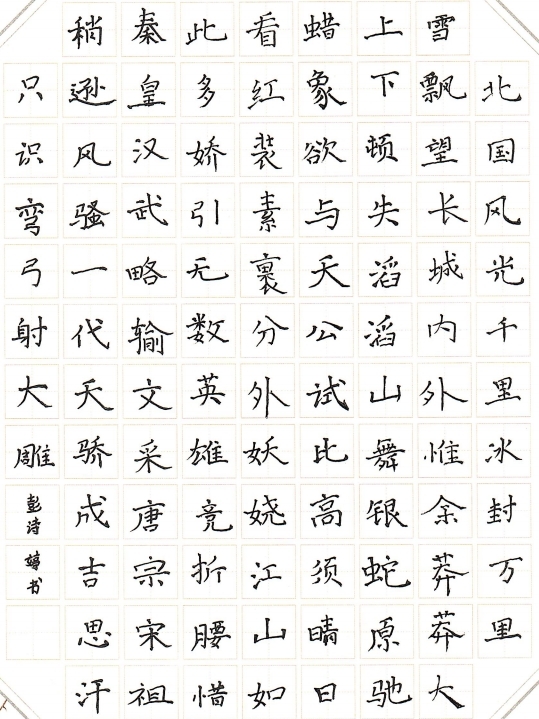 北国风光千里冰封万里
雪飘望长城内外惟余莽莽大
上下顿失滔滔山舞银蛇原驰
蜡象欲与天公试比高须晴日
看红装素裹分外妖娆江山如
此多娇引无数英雄竞折腰惜
秦皇汉武略输文采唐宗宋祖
稍逊风骚一代天骄成吉思汗
只识弯弓射大雕
彭诗婷书